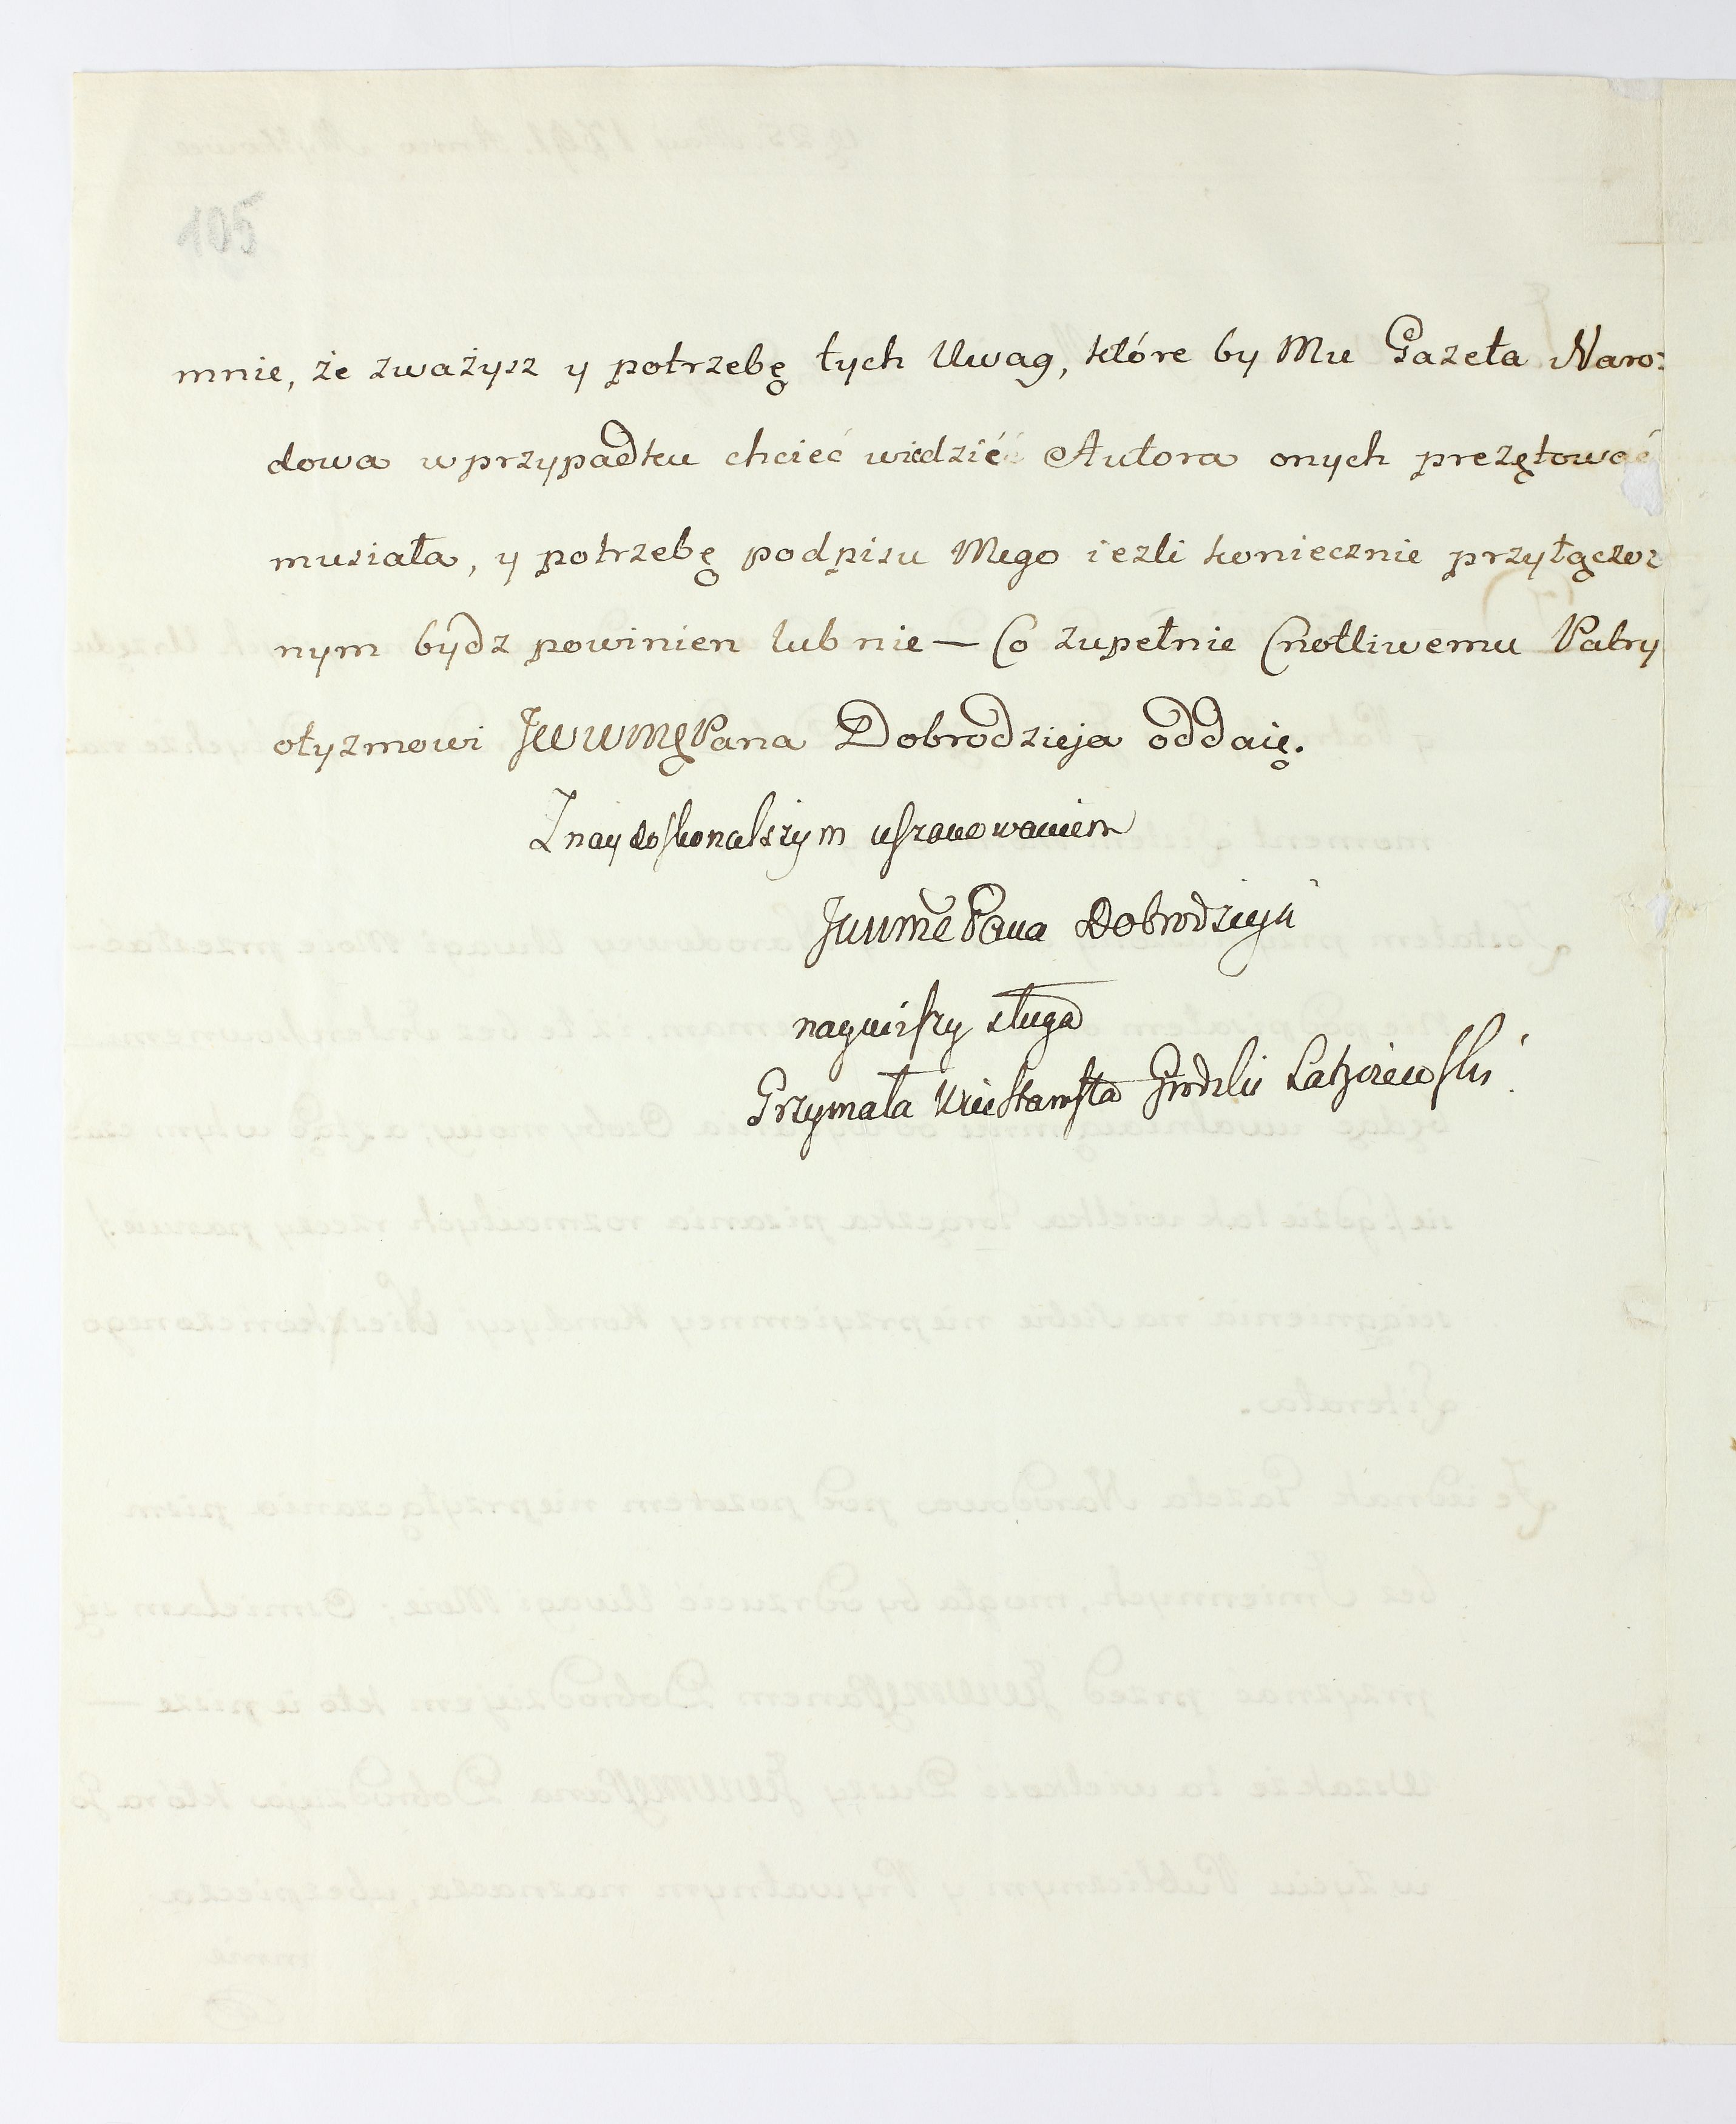 105
mnie, że zważysz y potrzebę tych Uwag, które by Mu Gazeta Naro:
dowa w przypadku chcieć widzieć Autora onych prezętować
musiała, y potrzebę podpisu Mego iezli koniecznie przyłączo:
nym bydz powinien lub nie — Co zupełnie Cnotliwemu Patry
otyzmowi JWWMPana Dobrodzieja oddaię.
Z naydoskonalszym uszanowaniem
JWWMPana Dobrodzieja
naywiższy sługa
Grzymała